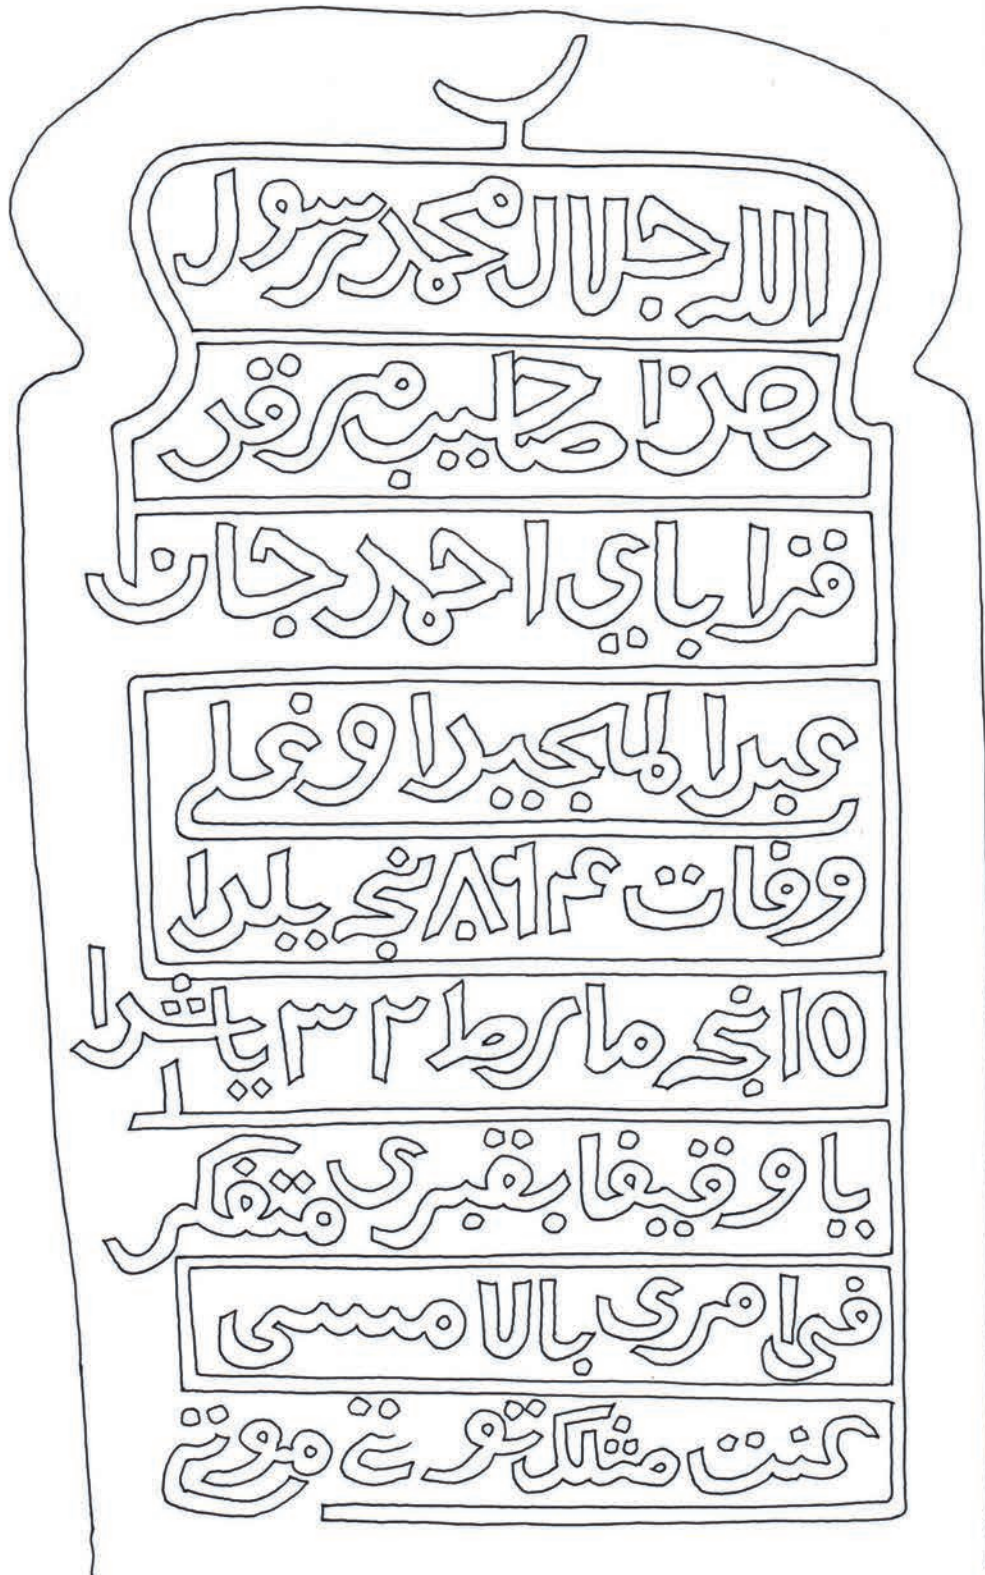 الله جلال محمد رسول
هذا صاحب مرقد
قزا باي احمد جان
عبد المجيد اوغلي
وفات ۱۸۹۴ نجي يلدا
۱۵ نجي مارط ۳۲ ياشدا
يا وقيفا بقبرى متفكر
فى امرى بالامسى
كنت مثلك موتى